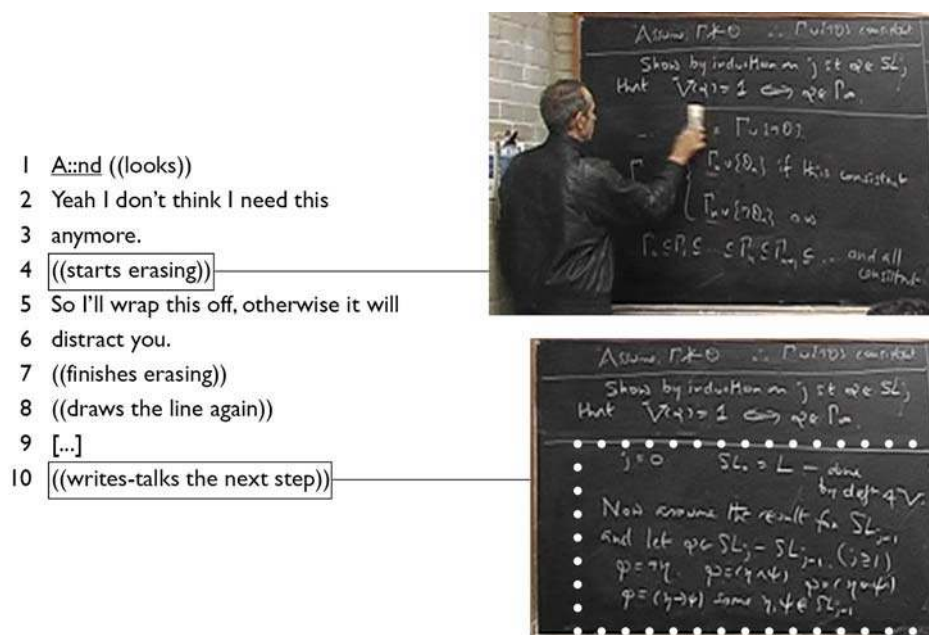 1 A::nd ((looks))
2 Yeah I don't think I need this
3 anymore.
4 ((starts erasing))
5 So I'll wrap this off, otherwise it will
6 distract you.
7 ((finishes erasing))
8 ((draws the line again))
9 [...]
10 ((writes-talks the next step))
Assume Γ⊭θ ∴ Γ∪{¬θ} consistent
Show by induction on j st φ∈ SLⱼ
that V(φ)=1 ⇔ φ∈Γ∞
= Γ∪{¬θ}
Γₙ∪{θₙ} if this consistent
Γₙ∪{¬θₙ} ow
Γ₀⊆Γ₁⊆ ... ⊆Γₙ⊆Γₙ₊₁⊆ ... and all
consistent
Assume Γ⊭θ ∴ Γ∪{¬θ} consistent
Show by induction on j st φ∈ SLⱼ
that V(φ)=1 ⇔ φ∈Γ∞
j=0 SL₀ = L — done
by defⁿ of V.
Now assume the result for SLⱼ₋₁
and let φ∈ SLⱼ = SLⱼ₋₁. (j≥1)
φ=¬η. φ=(η∧ψ) φ=(η∨ψ)
φ=(η→ψ) some η,ψ∈SLⱼ₋₁